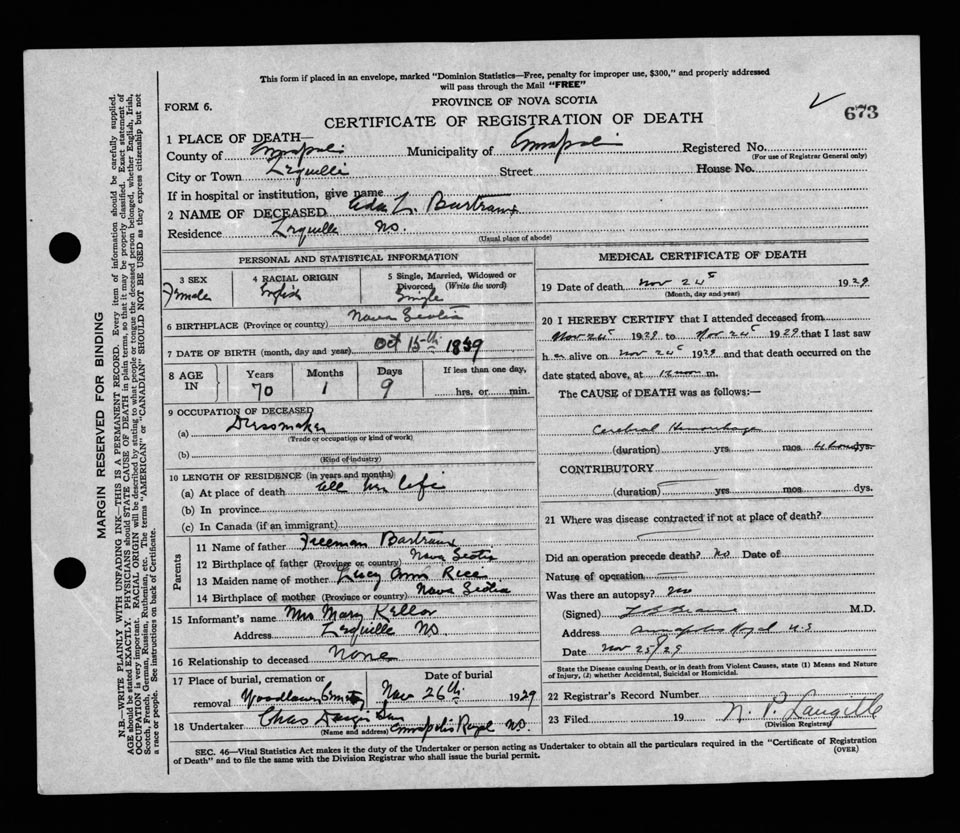 This form if placed in an envelope, marked "Dominion Statistics—Free, penalty for improper use, $300," and properly addressed
will pass through the Mail "FREE"
FORM 6.
PROVINCE OF NOVA SCOTIA
673
CERTIFICATE OF REGISTRATION OF DEATH
1 PLACE OF DEATH—
County of Annapolis Municipality of Annapolis Registered No.
(For use of Registrar General only)
City or Town Lequille Street House No.
If in hospital or institution, give name
2 NAME OF DECEASED Ada L. Bartraux
Residence Lequille NS.
(Usual place of abode)
PERSONAL AND STATISTICAL INFORMATION
3 SEX Female
4 RACIAL ORIGIN English
5 Single, Married, Widowed or Divorced, (Write the word) Single
6 BIRTHPLACE (Province or country) Nova Scotia
7 DATE OF BIRTH (month, day and year) Oct 15th 1859
8 AGE IN Years 70 Months 1 Days 9 If less than one day, hrs. or min.
9 OCCUPATION OF DECEASED
(a) Dressmaker
(Trade or occupation or kind of work)
(b)
(Kind of industry)
10 LENGTH OF RESIDENCE (in years and months)
(a) At place of death all her life
(b) In province
(c) In Canada (if an immigrant)
Parents
11 Name of father Freeman Bartraux
12 Birthplace of father (Province or country) Nova Scotia
13 Maiden name of mother Lucy Ann Rice
14 Birthplace of mother (Province or country) Nova Scotia
15 Informant's name Mrs Mary Kellor
Address Lequille NS
16 Relationship to deceased None
17 Place of burial, cremation or removal Woodlawn Cemetery
Date of burial Nov 26th 1929
18 Undertaker Chas Dargie Son
(Name and address) Annapolis Royal NS.
MEDICAL CERTIFICATE OF DEATH
19 Date of death Nov 24 1929
(Month, day and year)
20 I HEREBY CERTIFY that I attended deceased from
Nov 24 1929 to Nov 24 1929 that I last saw
her alive on Nov 24 1929 and that death occurred on the
date stated above, at 12 noon m.
The CAUSE of DEATH was as follows:—
Cerebral Hemorrhage
(duration) yrs mos 4 hours dys.
CONTRIBUTORY
(duration) yrs mos dys.
21 Where was disease contracted if not at place of death?
Did an operation precede death? No Date of
Nature of operation
Was there an autopsy? no
(Signed) M.D.
Address Annapolis Royal N.S.
Date Nov 25/29
State the Disease causing Death, or in death from Violent Causes, state (1) Means and Nature
of Injury, (2) whether Accidental, Suicidal or Homicidal.
22 Registrar's Record Number
23 Filed 19 N. P. Langille
(Division Registrar)
SEC. 46—Vital Statistics Act makes it the duty of the Undertaker or person acting as Undertaker to obtain all the particulars required in the "Certificate of Registration
of Death" and to file the same with the Division Registrar who shall issue the burial permit.
(OVER)
MARGIN RESERVED FOR BINDING
N.B.—WRITE PLAINLY WITH UNFADING INK—THIS IS A PERMANENT RECORD. Every item of information should be carefully supplied.
AGE should be stated EXACTLY. PHYSICIANS should STATE CAUSE OF DEATH in plain terms, so that it may be properly classified. Exact statement of
OCCUPATION is very important. RACIAL ORIGIN will be described by stating to what people or tongue the deceased person belonged, whether English, Irish,
Scotch, French, German, Russian, Ruthenian, etc. The terms "AMERICAN" or "CANADIAN" SHOULD NOT BE USED as they express citizenship but not
a race or people. See instructions on back of Certificate.